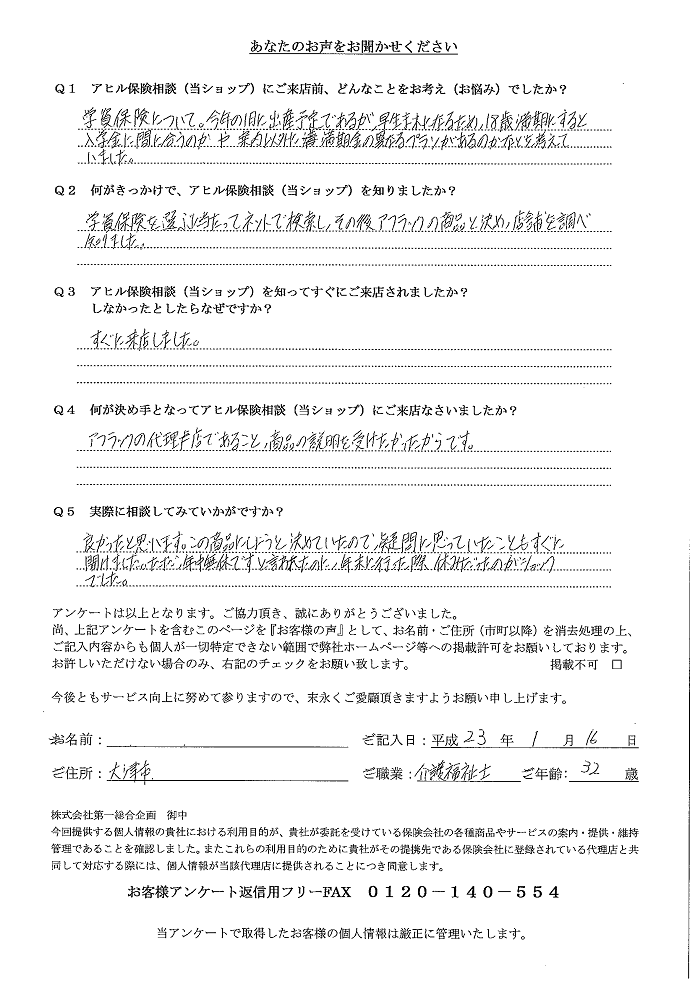 あなたのお声をお聞かせください
Q1 アヒル保険相談(当ショップ)にご来店前、どんなことをお考え(お悩み)でしたか?
学資保険について。今年の1月に出産予定であるが、早生まれになるため、18歳満期にすると
入学金に間に合うのか や 案内以外に 満期金の異なるプランがあるのかなどを考えて
いました。
Q2 何がきっかけで、アヒル保険相談(当ショップ)を知りましたか?
学資保険を選ぶに当たってネットで検索し、その後アフラックの商品と決め、店舗を調べ
知りました。
Q3 アヒル保険相談(当ショップ)を知ってすぐにご来店されましたか?
しなかったとしたらなぜですか?
すぐに来店しました。
Q4 何が決め手となってアヒル保険相談(当ショップ)にご来店なさいましたか?
アフラックの代理店であること、商品の説明を受けたかったからです。
Q5 実際に相談してみていかがですか?
良かったと思います。この商品にしようと決めていたので疑問に思っていたこともすぐに
聞けました。ただ、年中無休ですと言われたのに、年末に行った際 休みだったのがショック
でした。
アンケートは以上となります。ご協力頂き、誠にありがとうございました。
尚、上記アンケートを含むこのページを『お客様の声』として、お名前・ご住所(市町以降)を消去処理の上、
ご記入内容からも個人が一切特定できない範囲で弊社ホームページ等への掲載許可をお願いしております。
お許しいただけない場合のみ、右記のチェックをお願い致します。 掲載不可 □
今後ともサービス向上に努めて参りますので、末永くご愛顧頂きますようお願い申し上げます。
お名前: ご記入日:平成 23 年 1 月 16 日
ご住所: 大津市 ご職業:介護福祉士 ご年齢: 32 歳
株式会社第一総合企画 御中
今回提供する個人情報の貴社における利用目的が、貴社が委託を受けている保険会社の各種商品やサービスの案内・提供・維持
管理であることを確認しました。またこれらの利用目的のために貴社がその提携先である保険会社に登録されている代理店と共
同して対応する際には、個人情報が当該代理店に提供されることにつき同意します。
お客様アンケート返信用フリーFAX 0120-140-554
当アンケートで取得したお客様の個人情報は厳正に管理いたします。